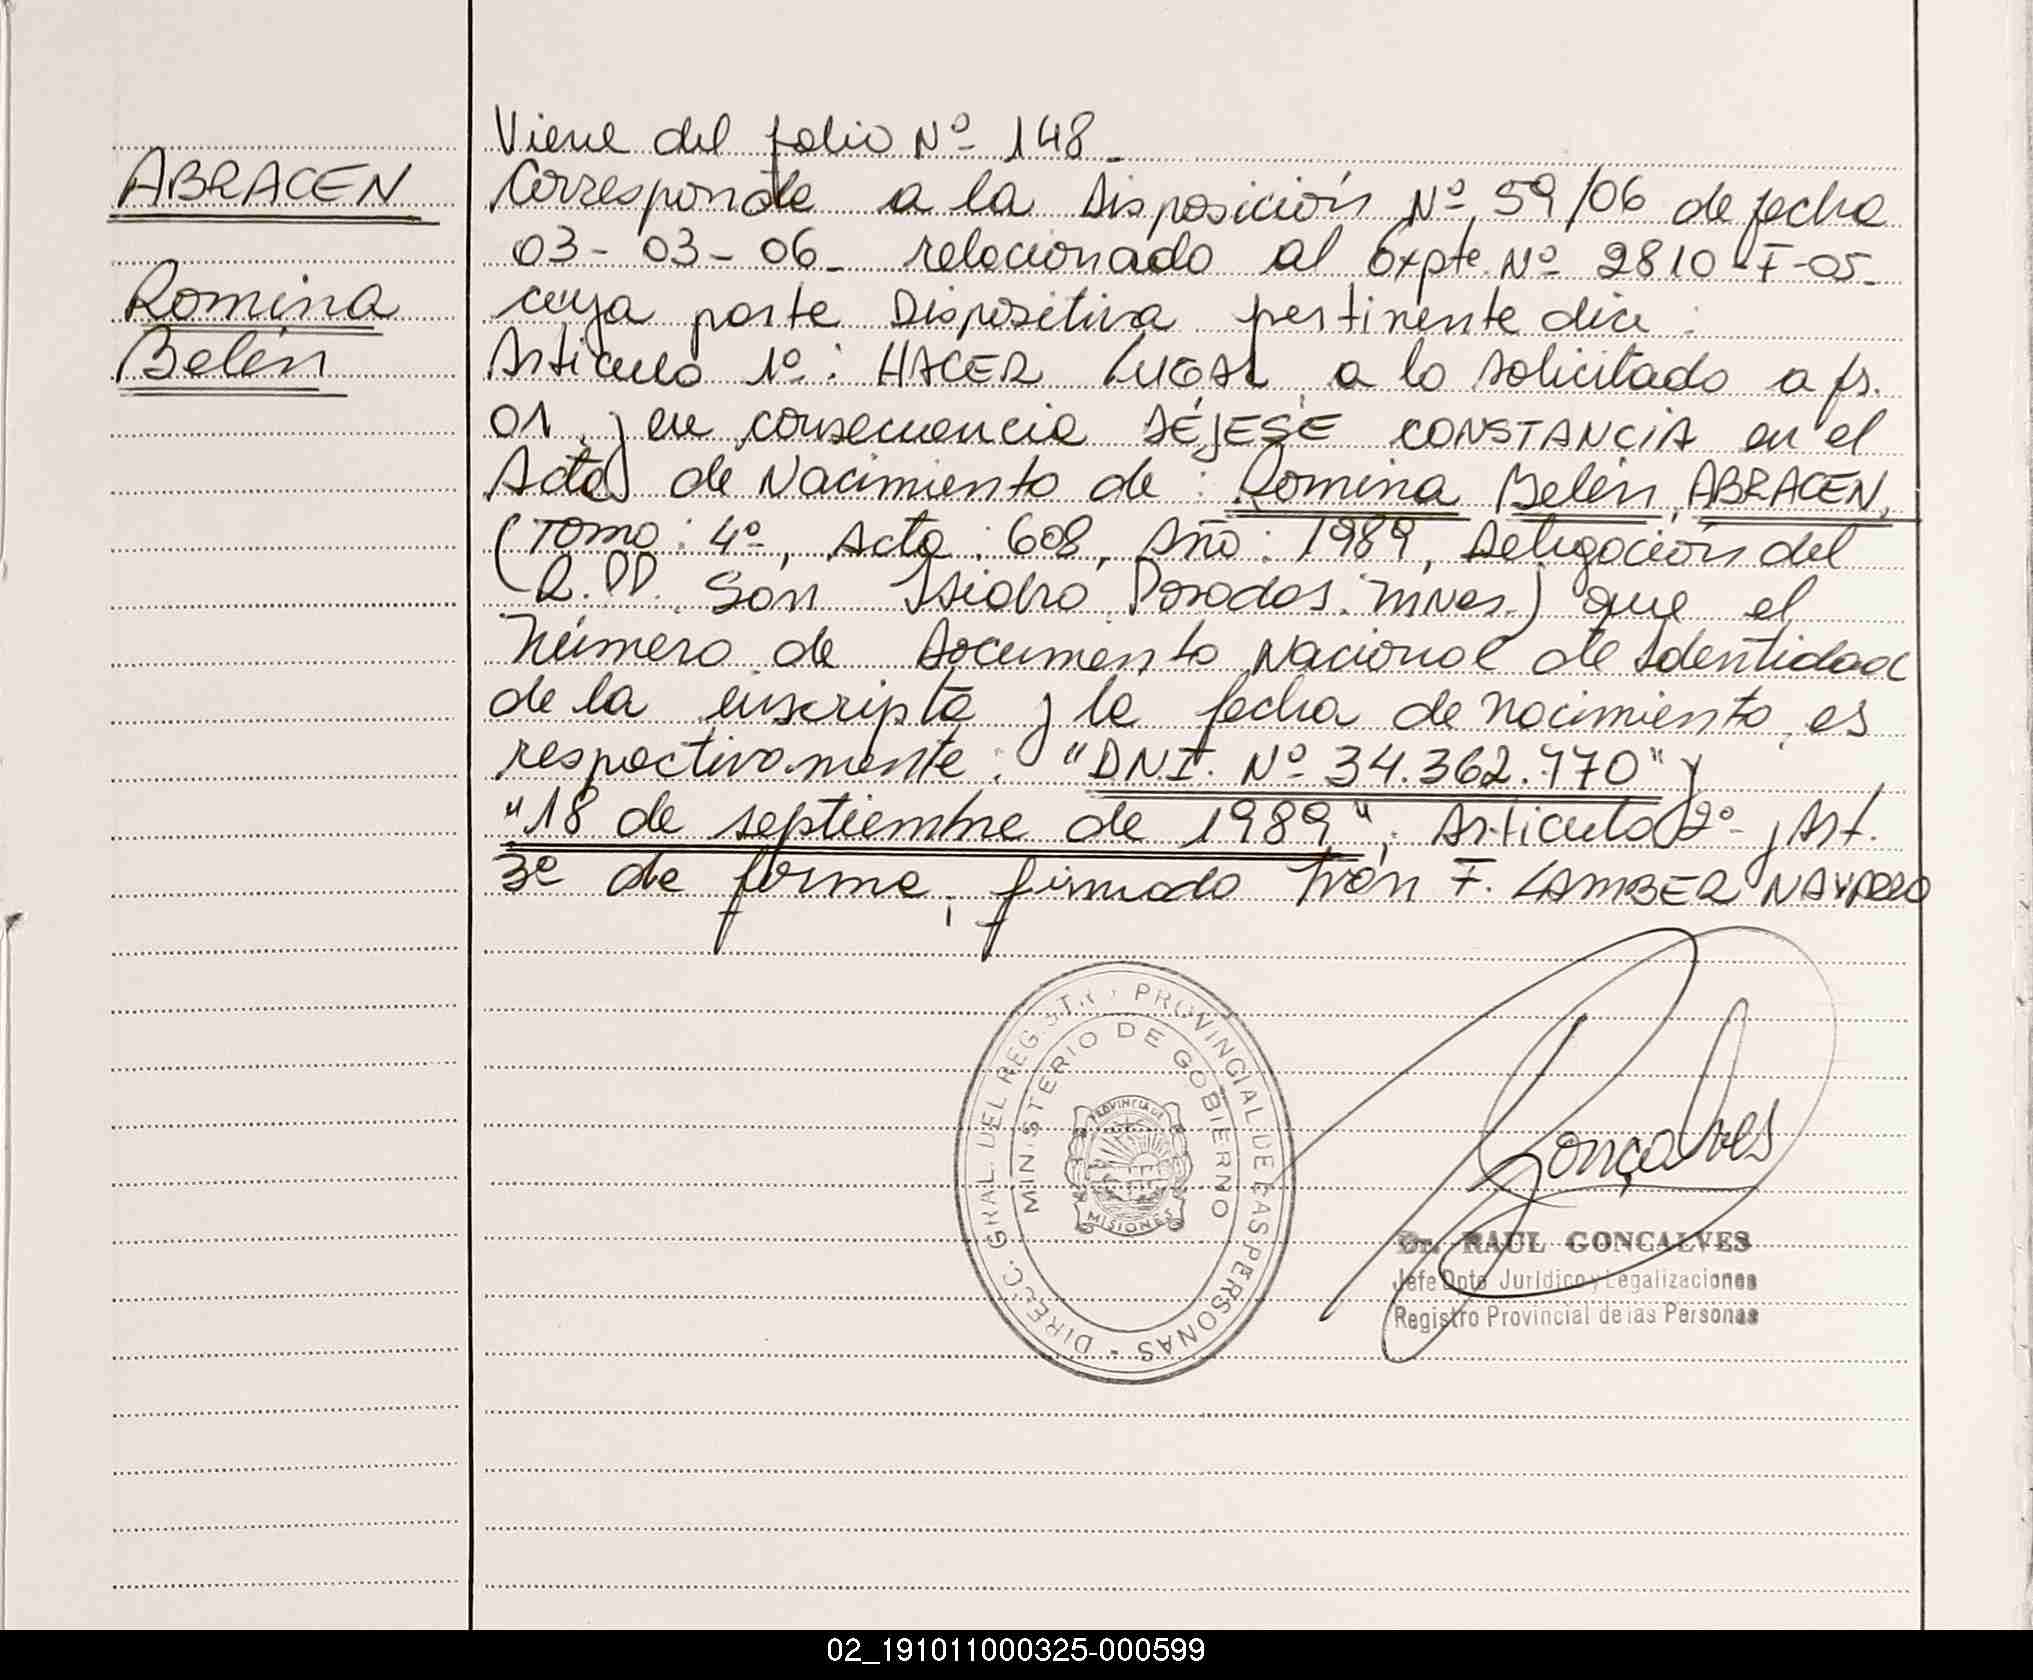 ABRACEN
Romina
Belén
Viene del folio Nº 148_
Corresponde a la Disposición Nº 59/06 de fecha
03-03-06_ relacionado al Expte. Nº 2810-F-05_
cuya parte Dispositiva pertinente dice:
Artículo 1º: HACER LUGAR a lo solicitado a fs.
01. y en consecuencia DÉJESE CONSTANCIA en el
Acta de Nacimiento de: Romina Belén ABRACEN,
(Tomo: 4º, Acta: 608, Año: 1989, Delegación del
R.PP. San Isidro Posadas. Mnes.) que el
Número de Documento Nacional de Identidad
de la inscripta y la fecha de nacimiento, es
respectivamente: "DN.I. Nº 34.362.770" y
"18 de septiembre de 1989"; Artículo 2º y Art.
3º de forma, firmado Iván F. LAMBER NAVARRO
DIRECC. GRAL. DEL REGISTRO PROVINCIAL DE LAS PERSONAS
MINISTERIO DE GOBIERNO
PROVINCIA DE
MISIONES
Gonçalves
Dr. RAUL GONCALVES
Jefe Dpto Jurídico y Legalizaciones
Registro Provincial de las Personas
02_191011000325-000599